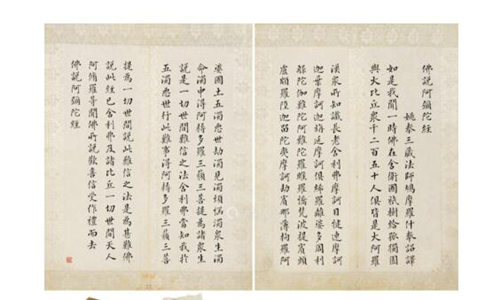 佛說阿彌陀經
姚秦三藏法師鳩摩羅什奉詔譯
如是我聞一時佛在舍衛國祇樹給孤獨園
與大比丘眾千二百五十人俱皆是大阿羅
漢眾所知識長老舍利弗摩訶目揵連摩訶
迦葉摩訶迦旃延摩訶俱絺羅離婆多周利
槃陀伽難陀阿難陀羅睺羅憍梵波提賓頭
盧頗羅墮迦留陀夷摩訶劫賓那薄拘羅阿
婆國土五濁惡世劫濁見濁煩惱濁眾生濁
命濁中得阿耨多羅三藐三菩提為諸眾生
說是一切世間難信之法舍利弗當知我於
五濁惡世行此難事得阿耨多羅三藐三菩
提為一切世間說此難信之法是為甚難佛
說此經已舍利弗及諸比丘一切世間天人
阿脩羅等聞佛所說歡喜信受作禮而去
佛說阿彌陀經